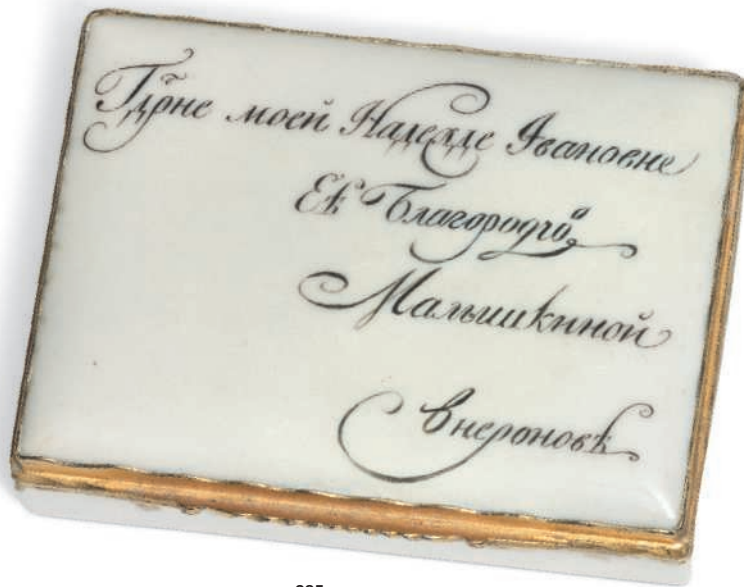 Гд҃рне моей Надежде Івановне
Еѣ Благородію
Малышкиной
Внероновѣ